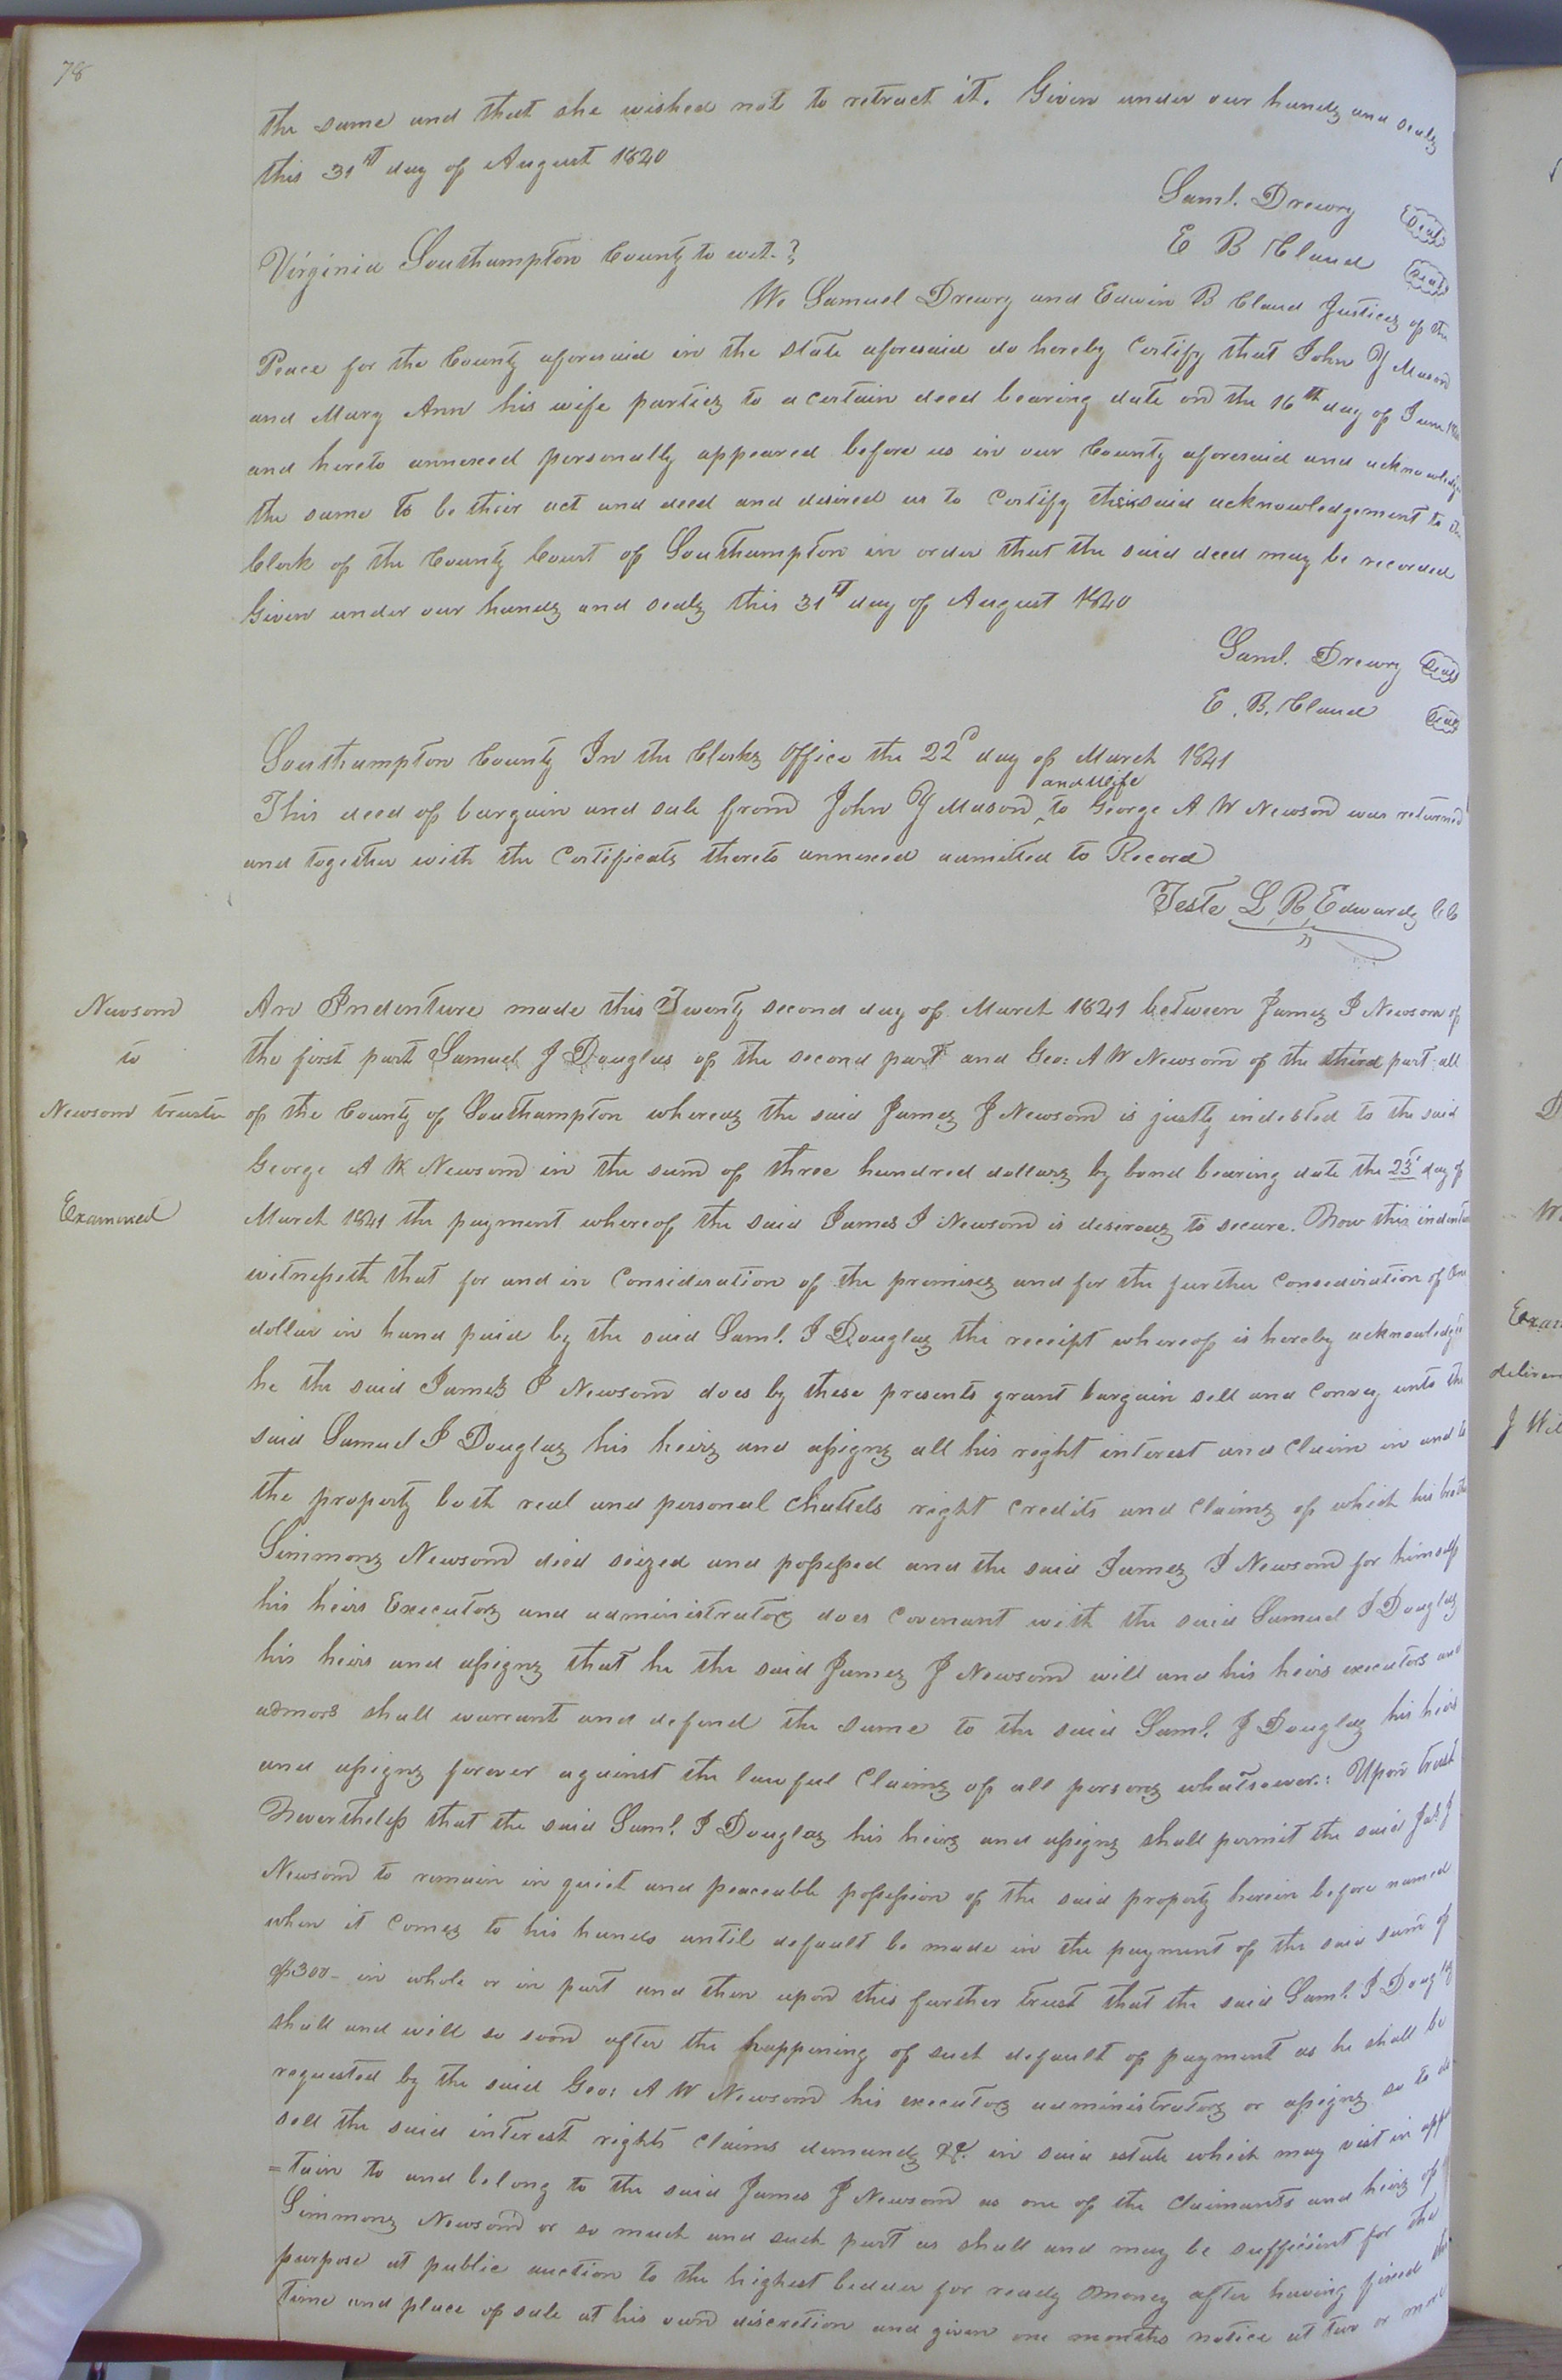 78
the same and that she wished not to retract it. Given under our hands and seals
this 31st day of August 1840
Saml. Drewry Seal
E B Claud Seal
Virginia Southampton County to wit.
We Samuel Drewry and Edwin B Claud Justices of the
Peace for the County aforesaid in the state aforesaid do hereby Certify that John Y Mason
and Mary Ann his wife parties to a certain deed bearing date on the 16th day of June
and hereto annexed personally appeared before us in our County aforesaid and acknowledge
the same to be their act and deed and desired us to Certify their said acknowledgement to the
Clerk of the County Court of Southampton in order that the said deed may be recorded
Given under our hands and seals this 31st day of August 1840
Saml. Drewry Seal
E. B. Claud Seal
Southampton County In the Clerks Office the 22d day of March 1841
and Wife
This deed of bargain and sale from John Y Mason ^ to George A W Newsom was returned
and together with the Certificates thereto annexed admitted to Record
Teste L R Edwards CC
Newsom
to
Newsom trustee
Examined
An Indenture made this Twenty second day of March 1841 between James J Newsom of
the first part Samuel J Douglas of the second part and Geo: A W Newsom of the third part all
of the County of Southampton whereas the said James J Newsom is justly indebted to the said
George A W Newsom in the sum of three hundred dollars by bond bearing date the 23 day of
March 1841 the payment whereof the said James J Newsom is desirous to secure. Now this
witnesseth that for and in Consideration of the premises and for the further Consideration of One
dollar in hand paid by the said Saml. J Douglas the receipt whereof is hereby acknowledged
he the said James J Newsom does by these presents grant bargain sell and Convey unto the
said Samuel J Douglas his heirs and assigns all his right interest and Claim in and to
the property both real and personal Chattels right Credits and Claims of which his
Simmons Newsom died seized and possessed and the said James J Newsom for himself
his heirs Executors and administrators does Covenant with the said Samuel J Douglas
his heirs and assigns that he the said James J Newsom will and his heirs executors and
admors shall warrant and defend the same to the said Saml. J Douglas his heirs
and assigns forever against the lawful Claims of all persons whatsoever: Upon trust
Nevertheless that the said Saml. J Douglas his heirs and assigns shall permit the said Jas. J
Newsom to remain in quiet and peaceable possession of the said property herein before named
when it Comes to his hands until default be made in the payment of the said sum of
$300- in whole or in part and then upon this further trust that the said Saml. J Douglas
shall and will so soon after the happening of such default of payment as he shall be
requested by the said Geo: A W Newsom his executors administrators or assigns so to do
sell the said interest rights Claims demands &c. in said estate which may vest in
=tain to and belong to the said James J Newsom as one of the Claimants and heirs of
Simmons Newsom or so much and such part as shall and may be sufficient for the
purpose at public auction to the highest bidder for ready money after having fixed the
time and place of sale at his own discretion and given one months notice at two or more